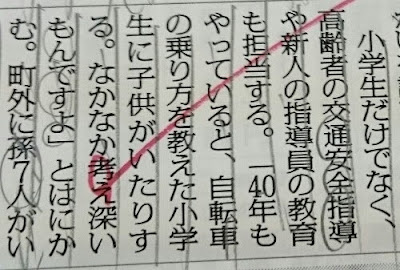 小学生だけでなく、
高齢者の交通安全指導
や新人の指導員の教育
も担当する。「40年も
やっていると、自転車
の乗り方を教えた小学
生に子供がいたりす
る。なかなか考え深い
もんですよ」とはにか
む。町外に孫7人がい